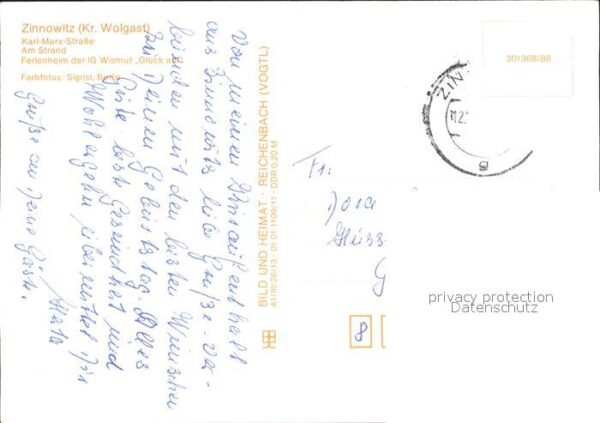 Zinnowitz (Kr. Wolgast)
Karl-Marx-Straße
Am Strand
Ferienheim der IG Wismut „Glück auf“
Farbfotos: Sigrist, Berlin
Von meinem Ihnaufenthalt
aus Zinnowitz liebe Grüße ver-
binden mit den besten Wünschen
zu Deinem Geburtstag. Alles
Gute beste Gesundheit und
Wohlergehn übermittelt Dir
Herta
Grüße an Deine Gäste.
BILD UND HEIMAT · REICHENBACH (VOGTL)
A1/III/26/13 · 01 01 1109/11 · DDR 0,20 M
301368/88
ZIN
8
Fr.
Dora
G
8
privacy protection
Datenschutz